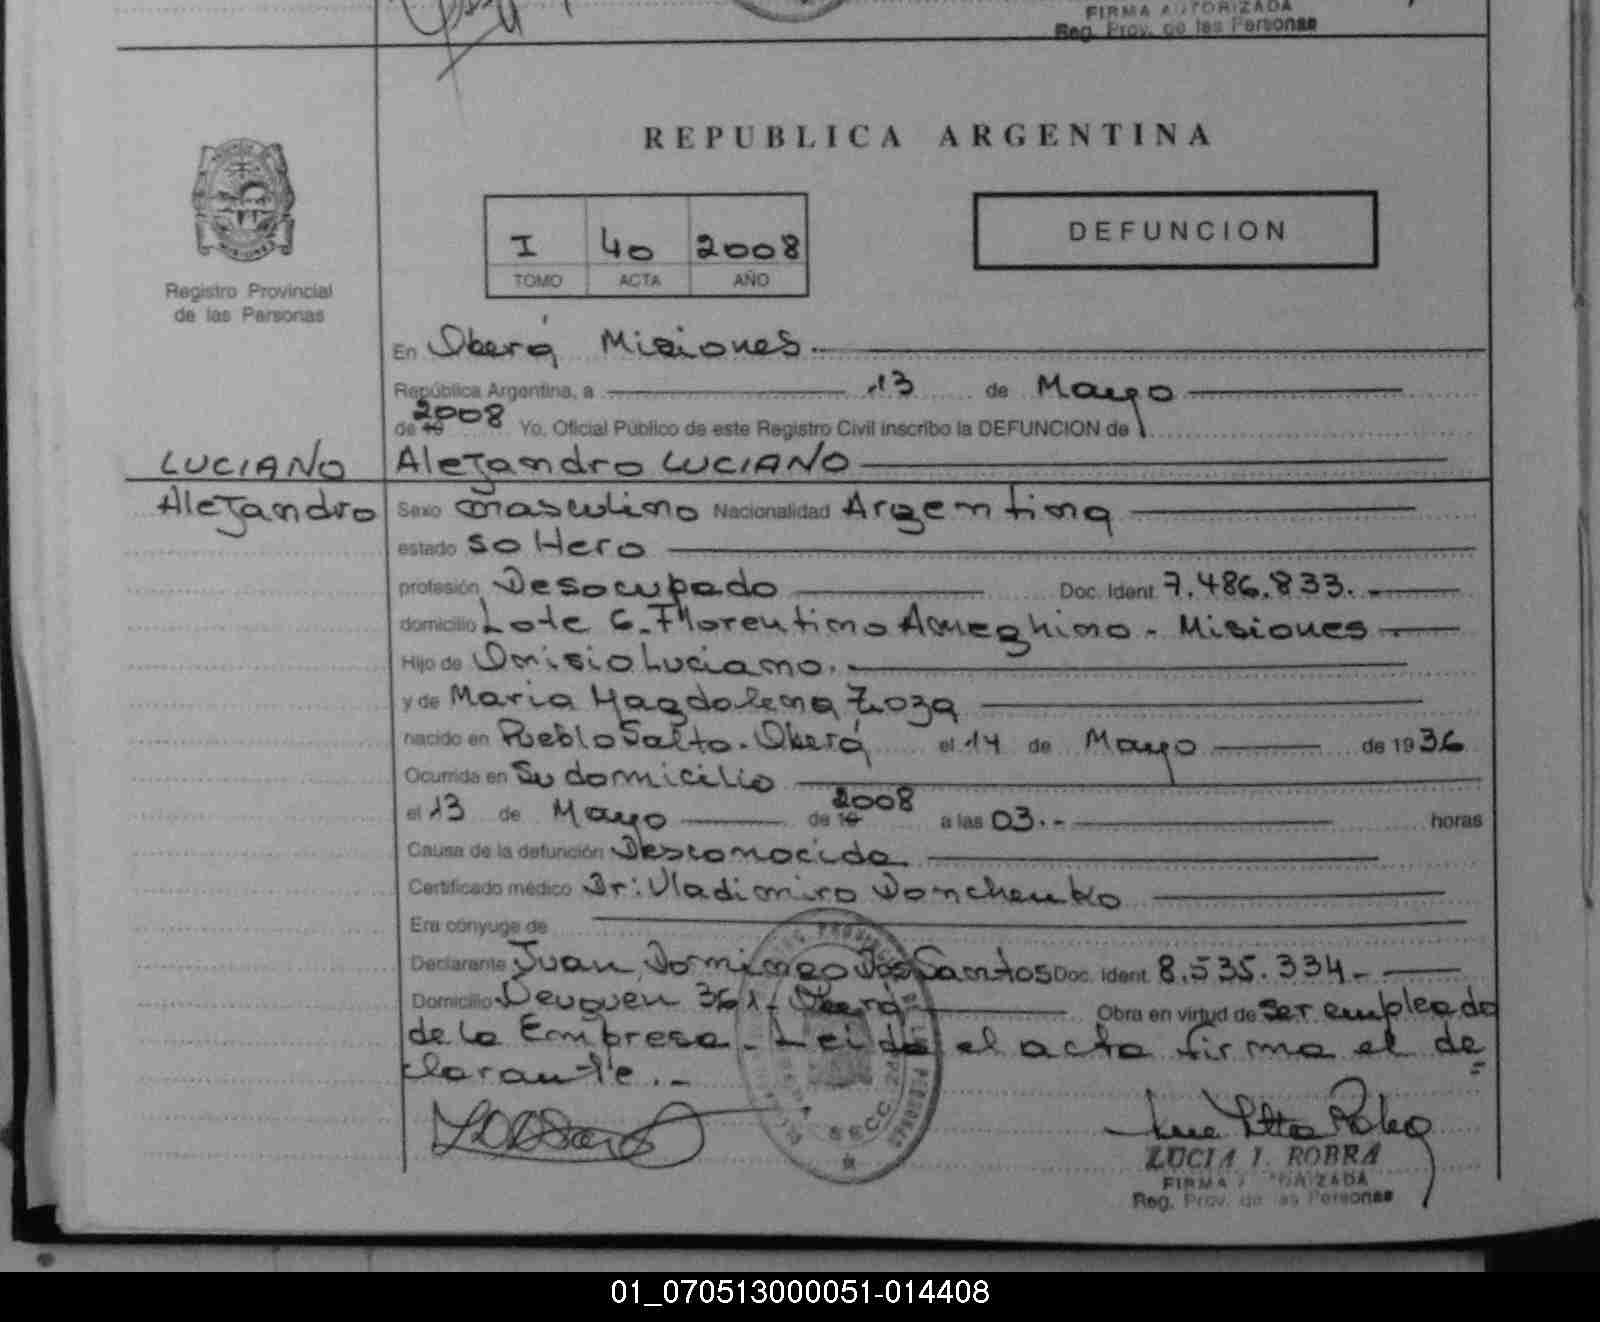 FIRMA AUTORIZADA
Reg. Prov. de las Personas
REPUBLICA ARGENTINA
I 40 2008
TOMO ACTA AÑO
DEFUNCION
Registro Provincial
de las Personas
En Oberá Misiones.
República Argentina, a 13 de Mayo
de 19 2008 Yo, Oficial Público de este Registro Civil inscribo la DEFUNCION de
LUCIANO Alejandro LUCIANO
Alejandro Sexo masculino Nacionalidad Argentina
estado soltero
profesión Desocupado Doc. Ident. 7.486.833.
domicilio Lote 6. Florentino Ameghino - Misiones
Hijo de Onisio Luciano.
y de Maria Magdalena Zoza
nacido en Pueblo Salto. Oberá el 14 de Mayo de 1936
Ocurrida en Su domicilio
el 13 de Mayo de 19 2008 a las 03.- horas
Causa de la defunción Desconocida
Certificado médico Dr: Vladimiro Donchenko
Era cónyuge de
Declarante Juan Domingo Dos Santos Doc. Ident. 8.535.334.-
Domicilio 361- Oberá Obra en virtud de ser empleado
de la Empresa - Leida el acta firma el de
clarante.-
LUCIA I. ROBRA
FIRMA AUTORIZADA
Reg. Prov. de las Personas
01_070513000051-014408